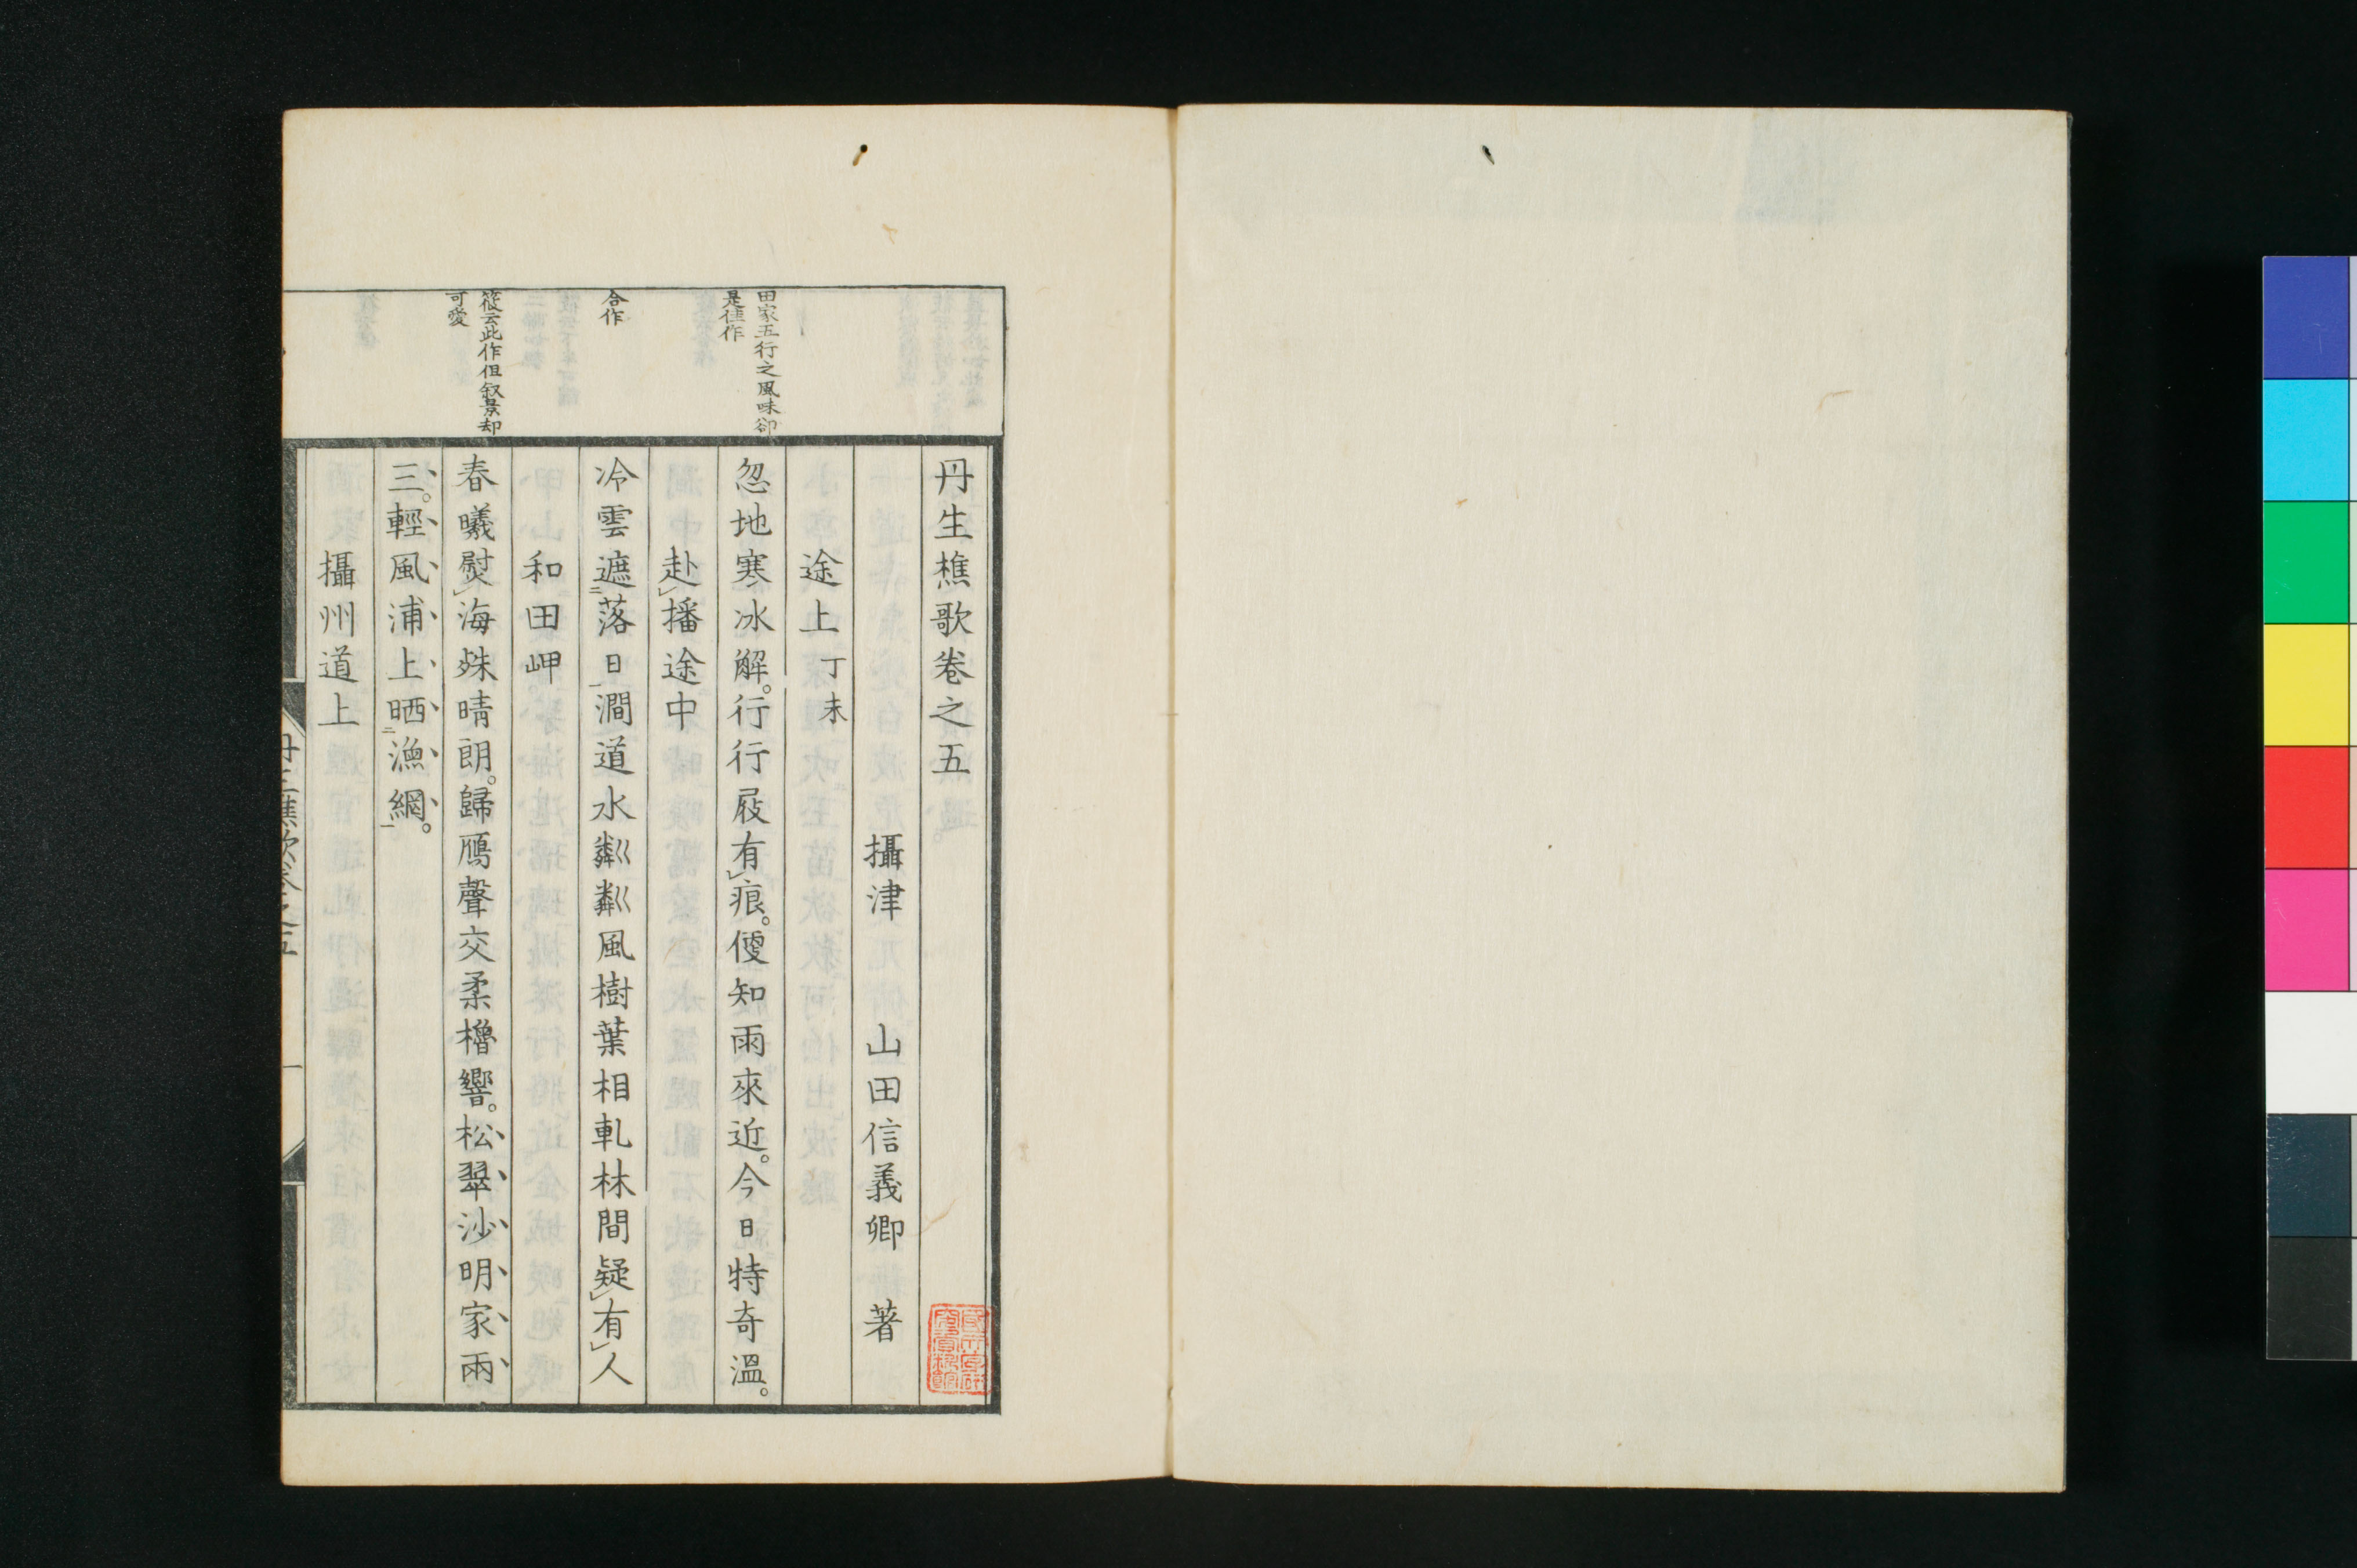 丹生樵歌卷之五
攝津　山田信義卿　著
途上　丁未
田家五行之風味卻
是佳作
忽地寒冰解。行行屐有痕。便知雨來近。今日特奇溫。
赴播途中
合作
冷雲遮落日澗道水粼粼風樹葉相軋林間疑有人
和田岬
筱云此作但叙景却
可愛
春曦熨海姝晴朗。歸鴈聲交柔櫓響。松翠沙明家兩
三。輕風浦上晒漁網。
攝州道上
丹生樵歌卷之五　一